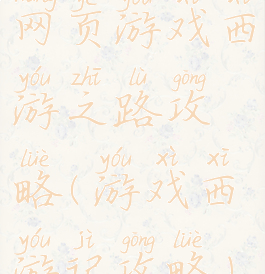 网页游戏西
yóu zhī lù gōng
游之路攻
lüè yóu xì xī
略(游戏西
yóu jì gōng lüè
游记攻略)